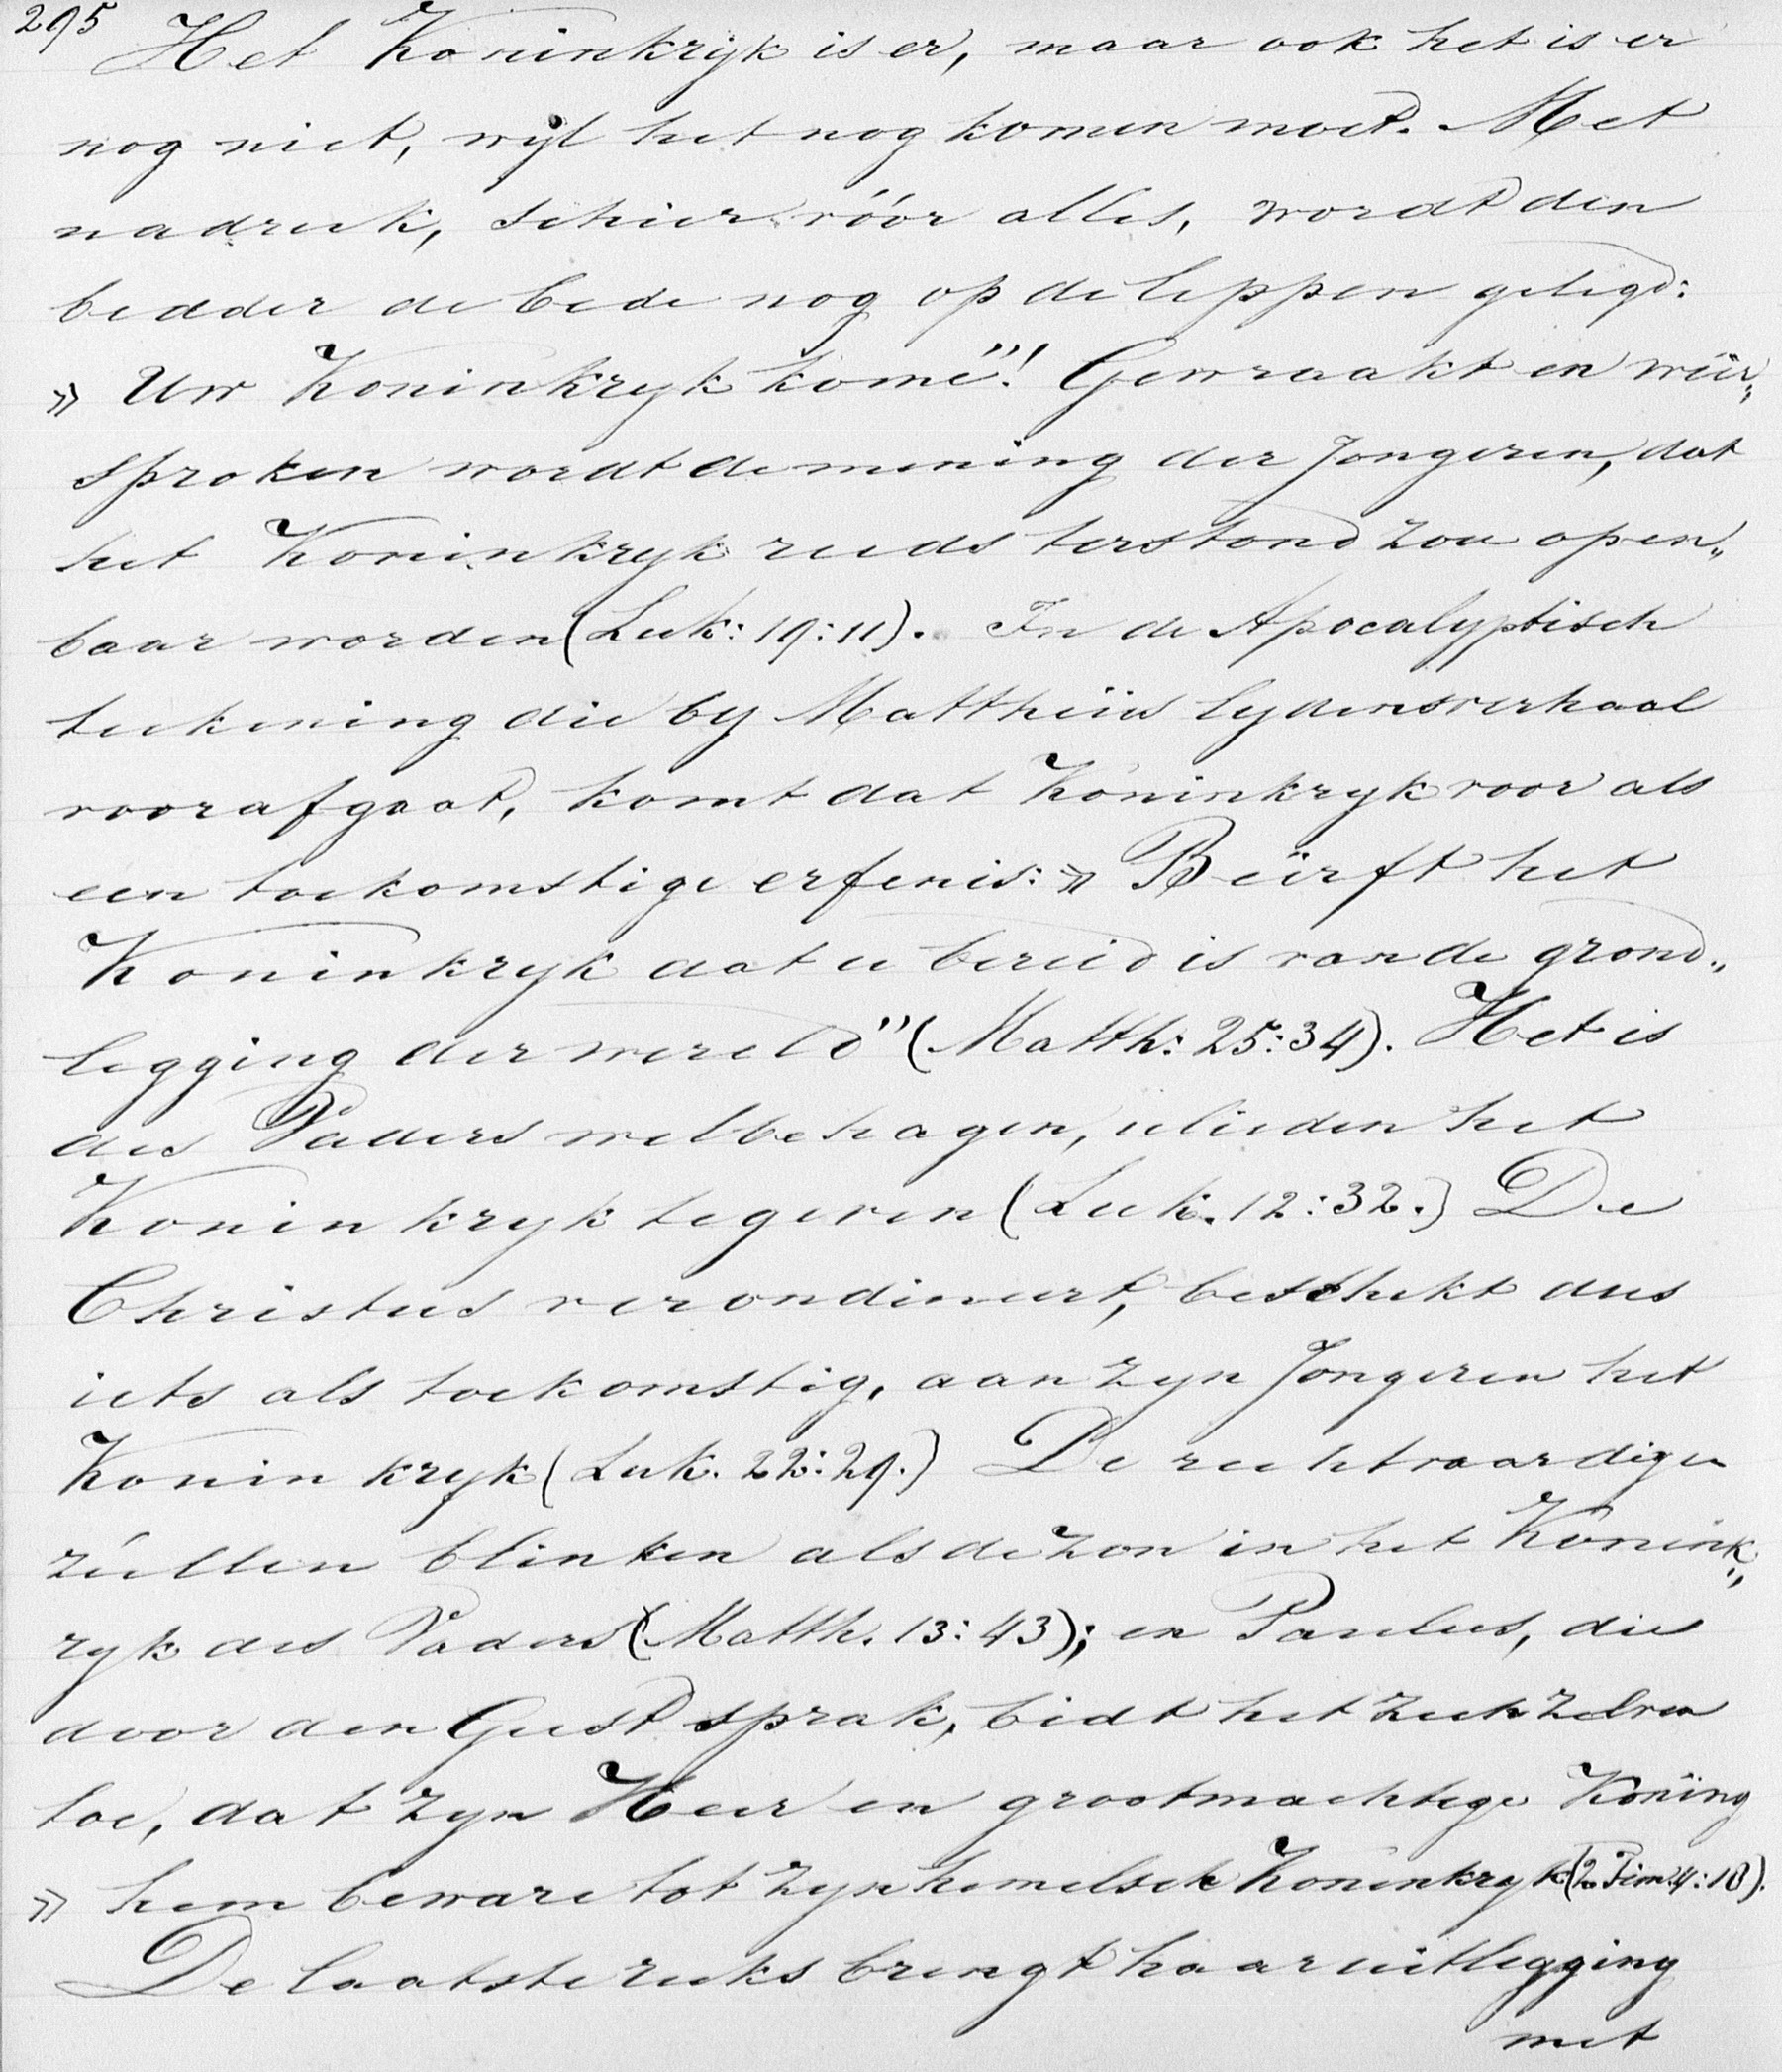 295
Het Koninkrijk is er, maar ook het is er
nog niet, wijl het nog komen moet. Met
nadruk, schier vóór alles, wordt den
bedder de bede nog op de lippen gelegd:
» Uw Koninkryk kome"! Gewraakt en weer„
sproken wordt de mening der Jongeren, dat
het Koninkryk reeds terstond zou open„
baar worden (Luk: 19:11). In de Apocalyptisch
teekening die by Mattheüs lydensverhaal
voorafgaat, komt dat Koninkryk voor als
een toekomstige erfenis: » Beërft het
Koninkryk dat u bereid is van de grond„
legging der wereld" (Matth: 25:34). Het is
des Vaders welbehagen, ulieden het
Koninkryk te geven (Luk. 12:32.) De
Christus verordineert, beschikt dus
iets als toekomstig, aan zyn Jongeren het
Koninkryk (Luk. 22:29.) De rechtvaardigen
zullen blinken als de zon in het Konink„
ryk des Vaders (Matth. 13:43); en Paulus, die
door den Geest sprak, bidt het zich zelven
toe, dat zyn Heer en grootmachtige Koning
» hem beware tot zyn hemelsch Koninkryk (2 Tim. 4:18).
De laatste reeks brengt haar uitlegging
met